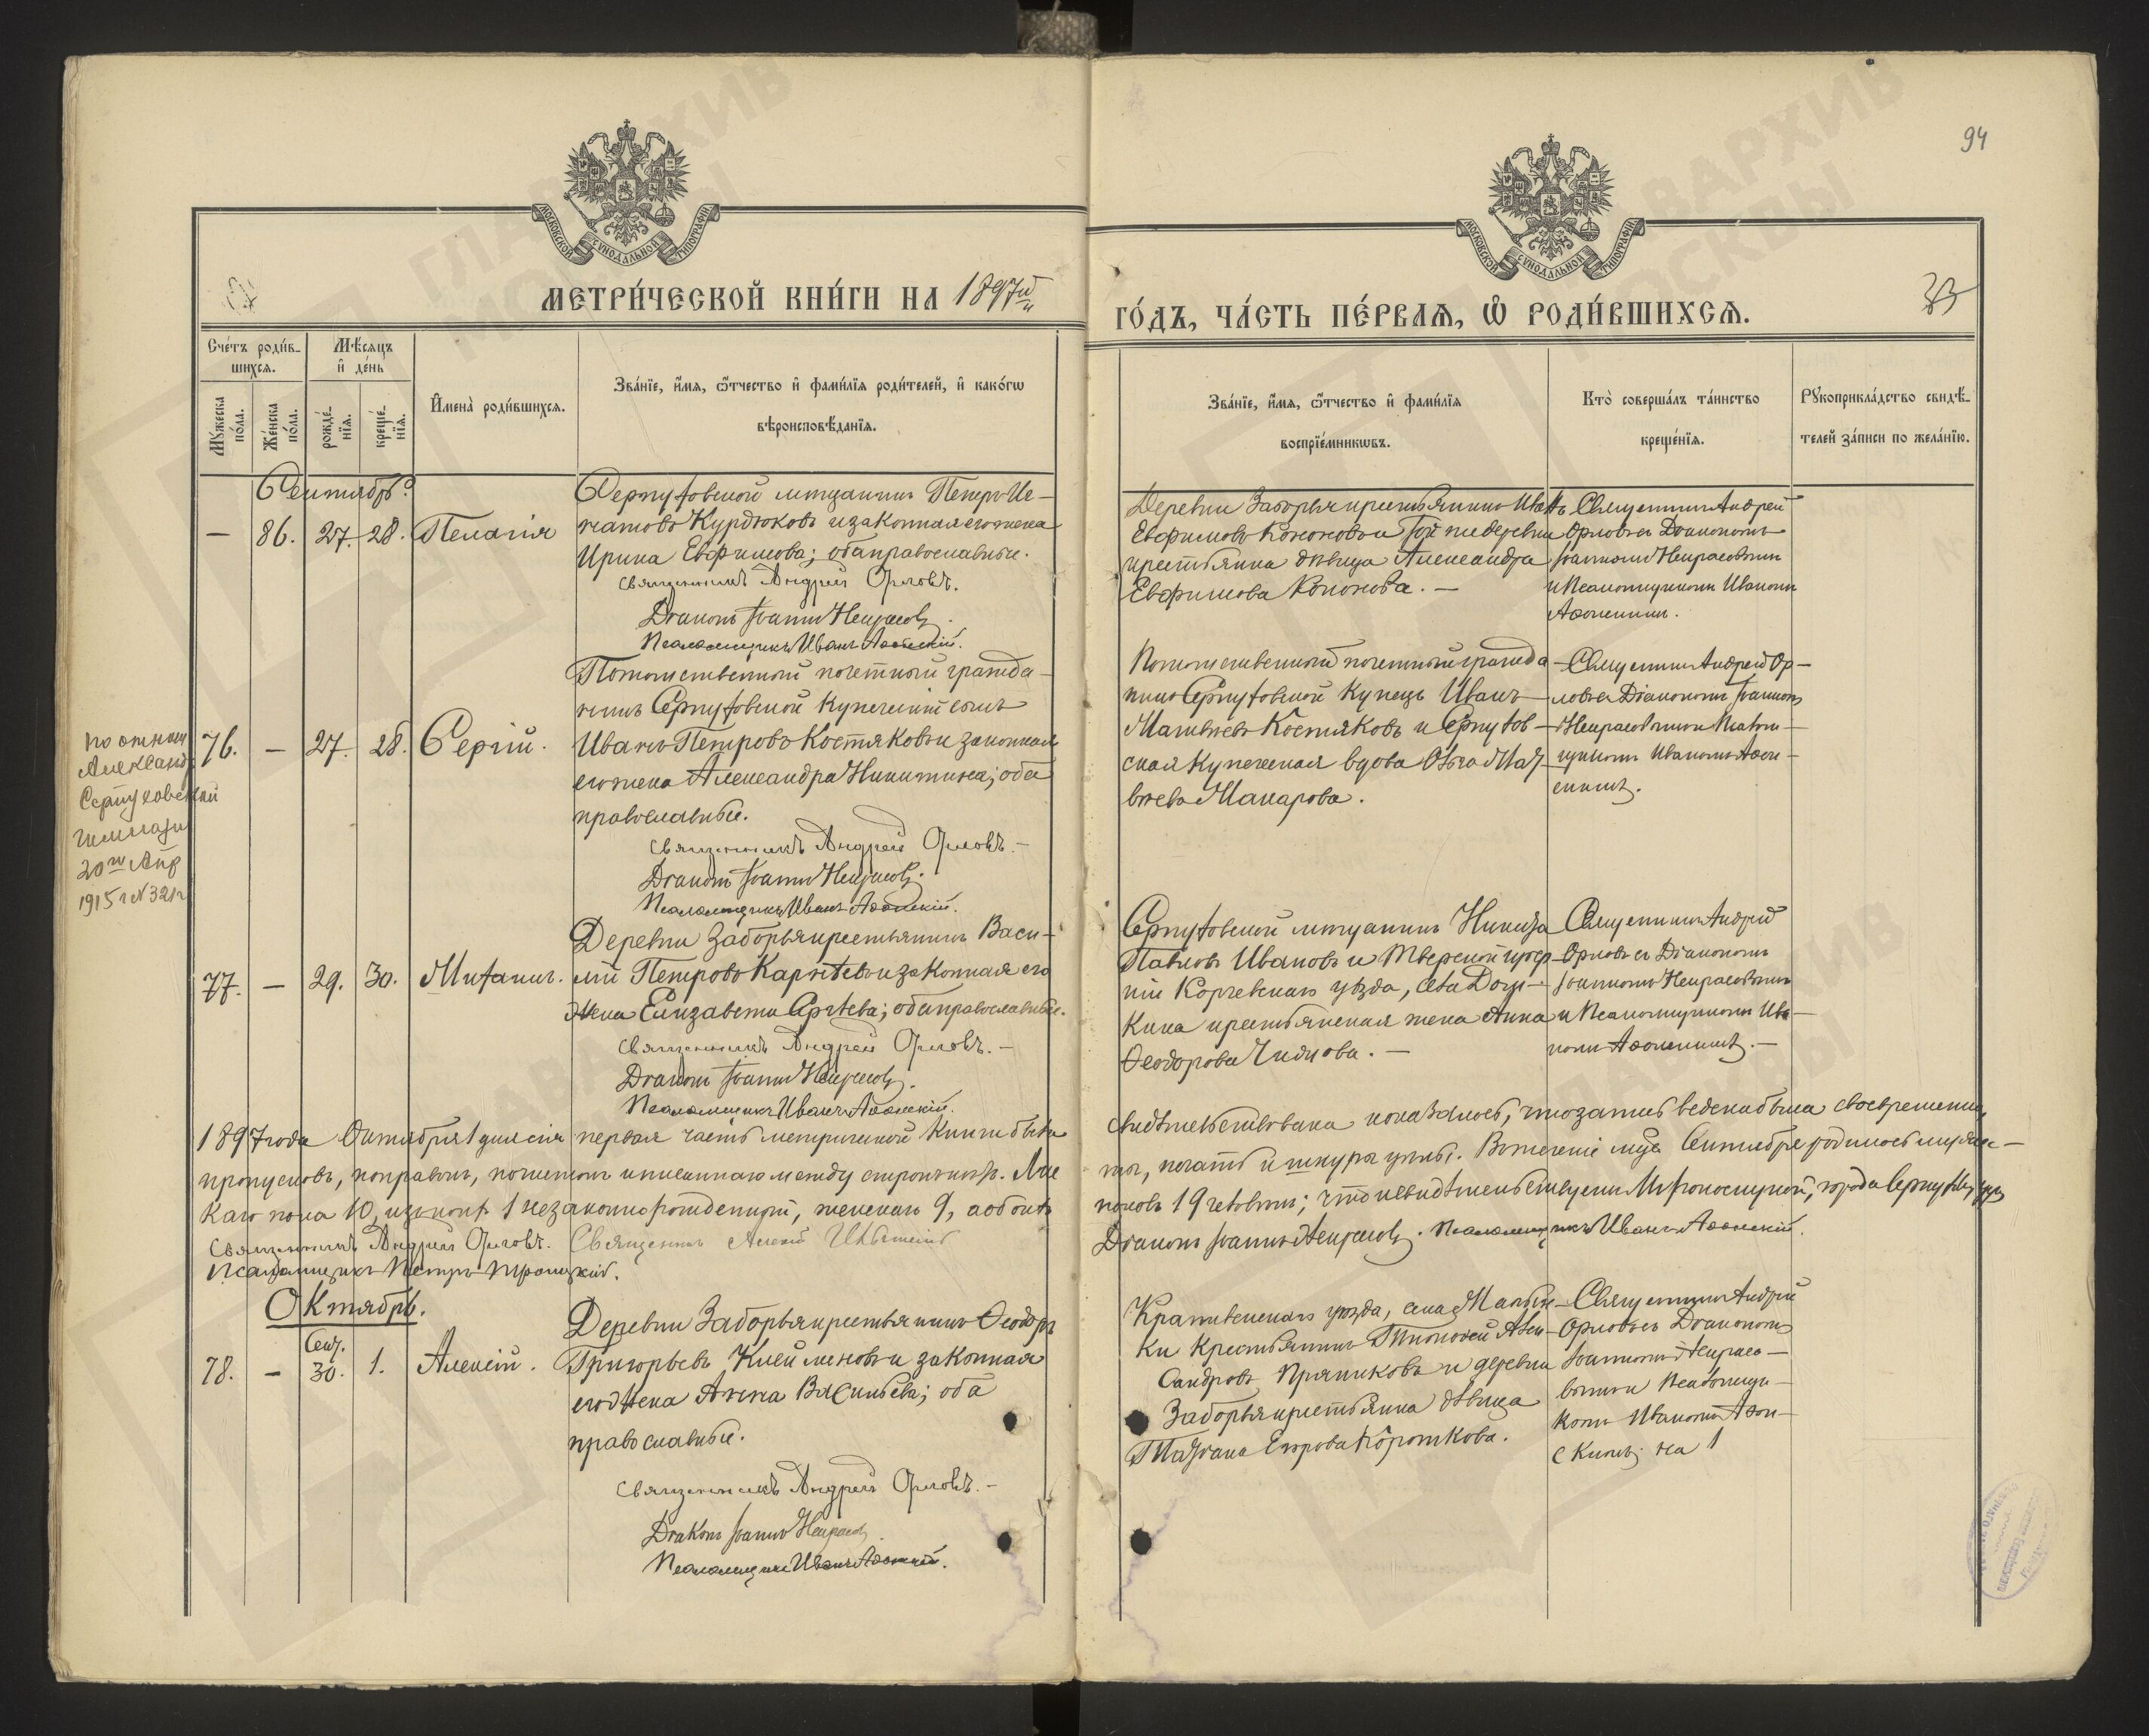 94
МОСКОВСКОЙ СУНОДАЛЬНОЙ ТИПОГРАФІИ
МОСКОВСКОЙ СУНОДАЛЬНОЙ ТИПОГРАФІИ
МЕТРИ́ЧЕСКОЙ КНИ́ГИ НА 1897й
ГО́ДЪ, ЧА́СТЬ ПЕ́РВАѦ, Ѽ РОДИ́ВШИХСѦ.
Сче́тъ роди́вшихсѧ.
Мѣ́сѧцъ и҆ де́нь
Мꙋ́жеска по́ла.
Же́нска по́ла.
рожде́нїѧ.
креще́нїѧ.
И҆мена̀ роди́вшихсѧ.
Зва́нїе, и҆́мѧ, ѻ҆́тчество и҆ фами́лїѧ роди́телей, и҆ како́гѡ
вѣроисповѣ́данїѧ.
Зва́нїе, и҆́мѧ, ѻ҆́тчество и҆ фами́лїѧ
воспрїе́мникѡвъ.
Кто̀ соверша́лъ та́инство
креще́нїѧ.
Рꙋкоприкла́дство свидѣ́-
телей за́писи по жела́нїю.
Сентябрь.
— 86. 27. 28. Пелагія
Серпуховской мѣщанинъ Петръ Иг-
натовъ Курдюковъ и законная его жена
Ирина Евфимова; оба православные.
Священникъ Андрей Орловъ.
Діаконъ Іоаннъ Некрасовъ.
Псаломщикъ Иванъ Афонскій.
Деревни Заборья крестьянинъ Иванъ
Евфимовъ Кононовъ и той же деревни
крестьянка дѣвица Александра
Евфимова Кононова. —
Священникъ Андрей
Орловъ съ Діакономъ
Іоанномъ Некрасовымъ
и Псаломщикомъ Иваномъ
Афонскимъ.
76. — 27. 28. Сергій.
Потомственный почетный гражда-
нинъ Серпуховской купеческій сынъ
Иванъ Петровъ Костяковъ и законная
его жена Александра Никитина; оба
православные.
Священникъ Андрей Орловъ. —
Діаконъ Іоаннъ Некрасовъ.
Псаломщикъ Иванъ Афонскій.
Потомственный почетный гражда-
нинъ Серпуховской купецъ Иванъ
Матвѣевъ Костяковъ и Серпухов-
ская купеческая вдова Ольга Мат-
вѣева Макарова.
Священникъ Андрей Ор-
ловъ съ Діакономъ Іоанномъ
Некрасовымъ и Псалом-
щикомъ Иваномъ Афон-
скимъ.
по отнош
Александр
Серпуховской
гимназіи
20го Апр
1915 г №321
77. — 29. 30. Михаилъ.
Деревни Заборья крестьянинъ Васи-
лій Петровъ Карпѣевъ и законная его
жена Елизавета Сергѣева; оба православные.
Священникъ Андрей Орловъ. —
Діаконъ Іоаннъ Некрасовъ.
Псаломщикъ Иванъ Афонскій.
Серпуховской мѣщанинъ Никита
Павловъ Ивановъ и Тверской губер-
ніи Корчевскаго уѣзда, села
крестьянская жена Анна
Феодорова
Священникъ Андрей
Орловъ съ Діакономъ
Іоанномъ Некрасовымъ
и Псаломщикомъ Ива-
номъ Афонскимъ. —
1897 года Октября 1 дня сія первая часть метрической книги была свидѣтельствована и оказалось, что запись ведена была своевременно,
пропусковъ, поправокъ, почистокъ и писаннаго между строкъ нѣтъ. Лис-ты, печать и шнуръ цѣлы. Въ теченіе мца Сентября родилось мужес-
каго пола 10, изъ коихъ 1 незаконнорожденный, женскаго 9, а обоихъ половъ 19 человѣкъ; что и свидѣтельствуемъ Мироносицкой, города Серпухова,
Священникъ Андрей Орловъ. Священникъ Алексій
Діаконъ Іоаннъ Некрасовъ. Псаломщикъ Иванъ Афонскій.
Псаломщикъ Петръ Троицкій.
Октябрь.
Сент.
78. — 30. 1. Алексій.
Деревни Заборья крестьянинъ Феодоръ
Григорьевъ Клейменовъ и законная
его жена Анна Васильева; оба
православные.
Священникъ Андрей Орловъ. —
Діаконъ Іоаннъ Некрасовъ.
Псаломщикъ Иванъ Афонскій.
Крапивенскаго уѣзда, села
ки крестьянинъ Тимофей Алек-
сандровъ Пряниковъ и деревни
Заборья крестьянка дѣвица
Татіана Егорова Короткова.
Священникъ Андрей
Орловъ съ Діакономъ
Іоанномъ Некрасо-
вымъ и Псаломщи-
комъ Иваномъ Афон-
скимъ.
ГЛАВАРХИВ МОСКВЫ
ГЛАВАРХИВ МОСКВЫ